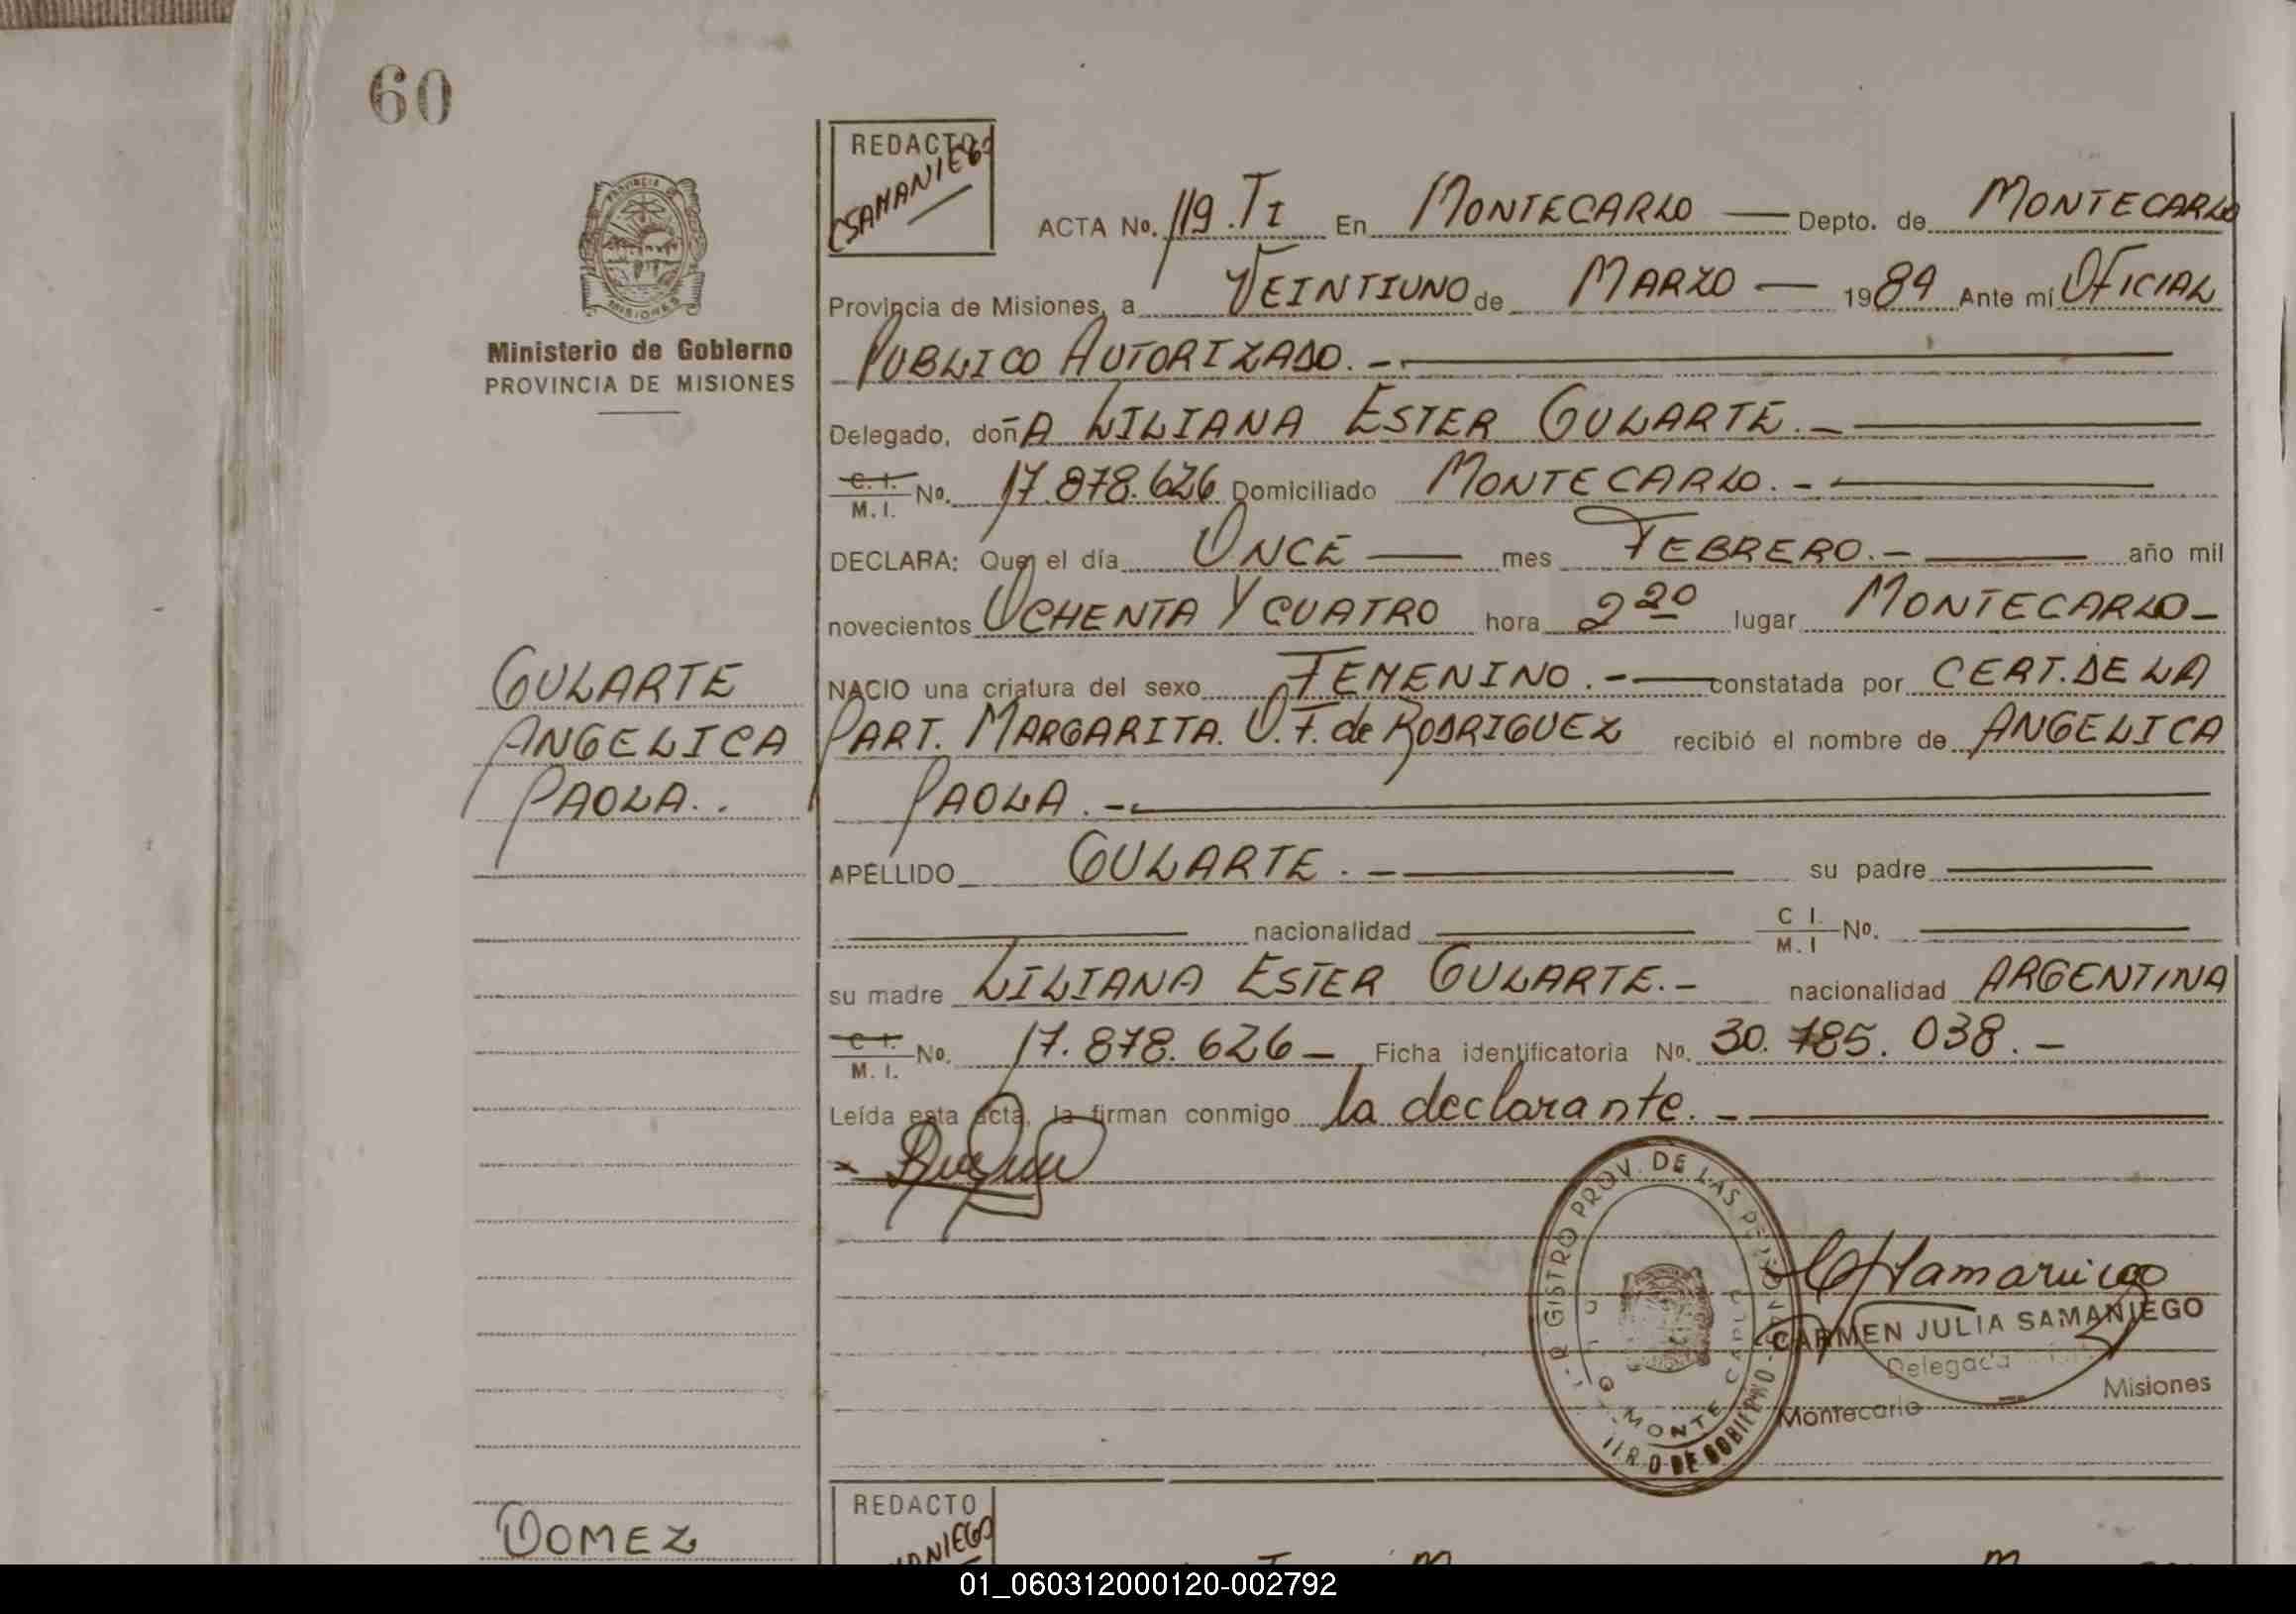 60
REDACTO
CSAMANIEGO
PROVINCIA
MISIONES
Ministerio de Gobierno
PROVINCIA DE MISIONES
ACTA No. 119. TI En MONTECARLO Depto. de MONTECARLO
Provincia de Misiones, a VEINTIUNO de MARZO 1984 Ante mí OFICIAL
PUBLICO AUTORIZADO. -
Delegado, doñA LILIANA ESTER GULARTE. -
C. I. / M. I. No. 17.878.626 Domiciliado MONTECARLO. -
DECLARA: Que el día ONCE mes FEBRERO. - año mil
novecientos OCHENTA Y CUATRO hora 2 20 lugar MONTECARLO -
GULARTE
ANGELICA
PAOLA. .
NACIO una criatura del sexo FEMENINO. - constatada por CERT. DE LA
PART. MARGARITA. O. F. de RODRIGUEZ recibió el nombre de ANGELICA
PAOLA. -
APELLIDO GULARTE. - su padre
nacionalidad C I. / M. I No.
su madre LILIANA ESTER GULARTE. - nacionalidad ARGENTINA
C I. / M. I. No. 17. 878. 626 - Ficha identificatoria No. 30. 785. 038. -
Leída esta acta, la firman conmigo la declarante. -
x
REGISTRO PROV. DE LAS PERSONAS
MONTE CARLO
DE GOBIERNO
CARMEN JULIA SAMANIEGO
Delegada
Montecarlo Misiones
GOMEZ
REDACTO
01_060312000120-002792